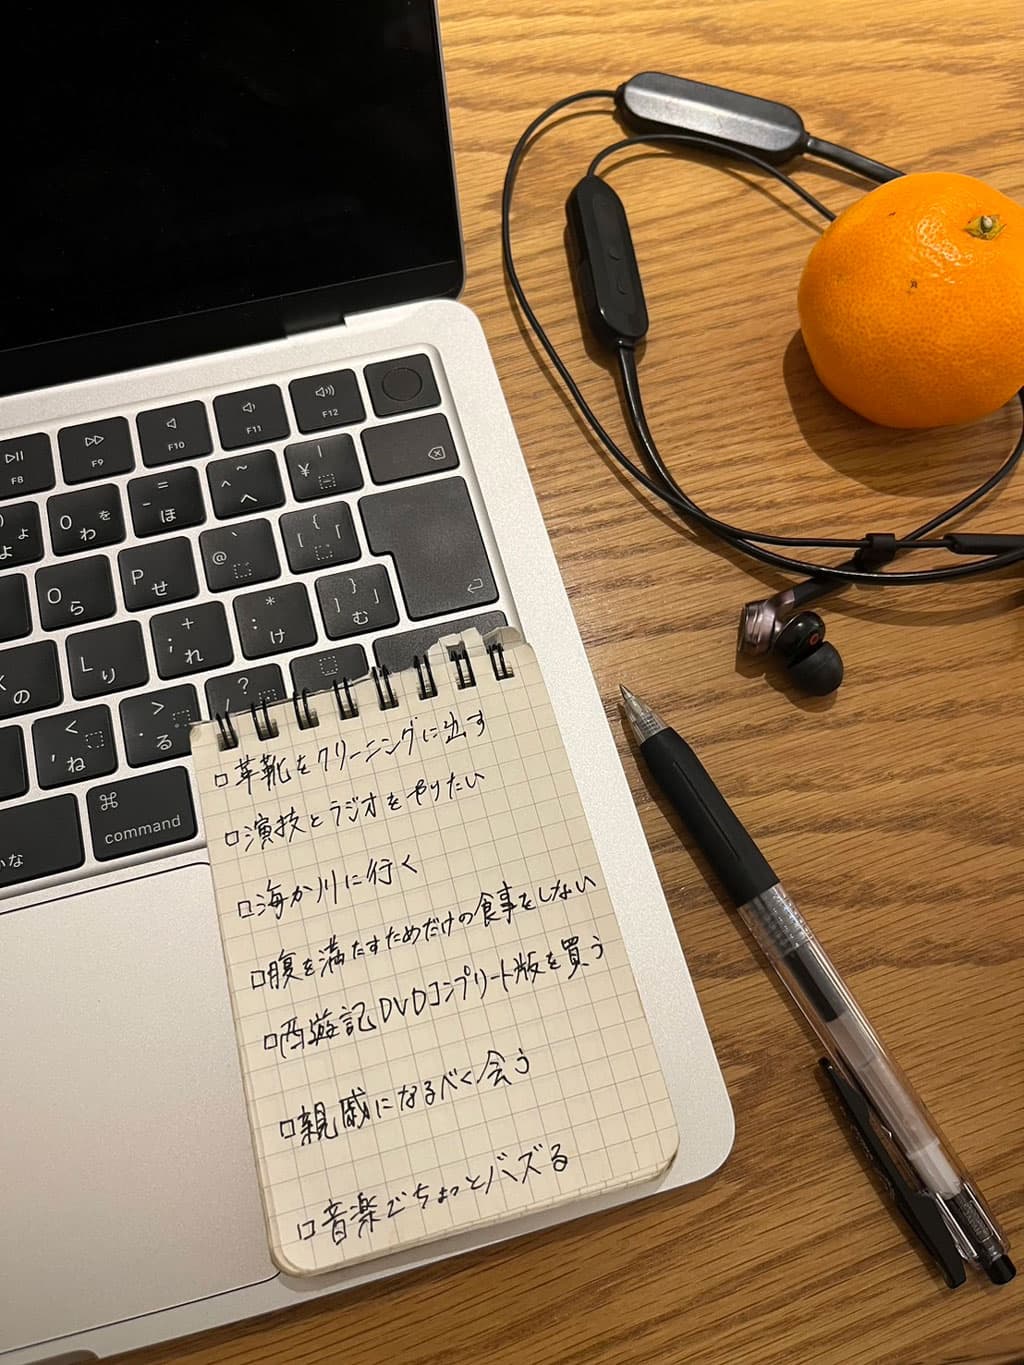 F8
F9
F10
F11
F12
よ
0 わ を
- = ほ
^ ~ へ
¥ |
O ら
P せ
@ `
[ { 「
の
L り
; + れ
: * け
] } 」 む
, < ね
. > る
/ ?
かな
⌘
command
□革靴をクリーニングに出す
□演技とラジオをやりたい
□海か川に行く
□腹を満たすためだけの食事をしない
□西遊記DVDコンプリート版を買う
□親戚になるべく会う
□音楽でちょっとバズる